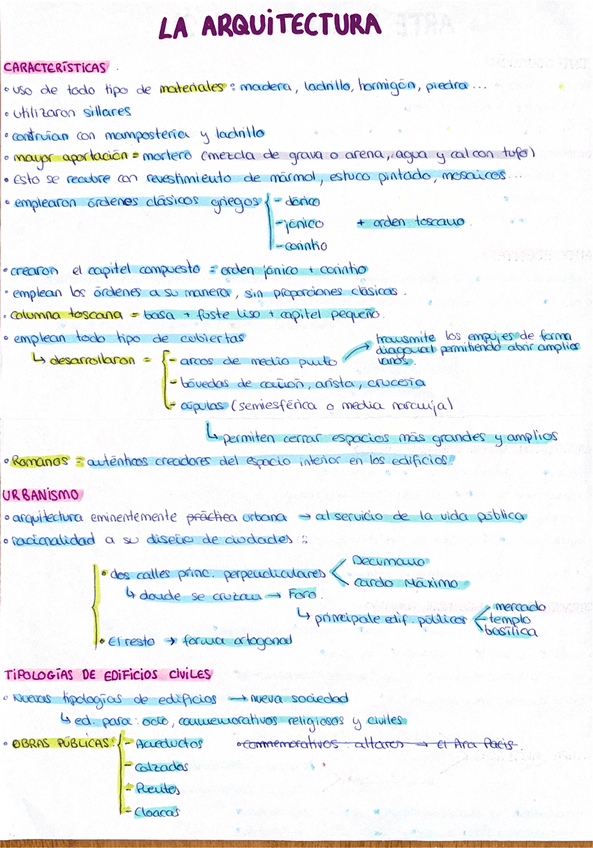 LA ARQUITECTURA
CARACTERÍSTICAS.
• uso de todo tipo de materiales: madera, ladrillo, hormigón, piedra...
• utilizaron sillares
• construían con mampostería y ladrillo
• mayor aportación = mortero (mezcla de grava o arena, agua y cal con tufo)
• esto se recubre con revestimiento de mármol, estuco pintado, mosaicos...
• emplearon órdenes clásicos griegos { - dórico
- jónico + orden toscano.
- corintio
• crearon el capitel compuesto = orden jónico + corintio
• emplean los órdenes a su manera, sin proporciones clásicas.
• columna toscana = basa + fuste liso + capitel pequeño.
• emplean todo tipo de cubiertas
↳ desarrollaron = { - arcos de medio punto → transmite los empujes de forma
diagonal permitiendo abrir amplios
vanos.
- bóvedas de cañón, arista, crucería
- cúpulas (semiesférica o media naranja)
↳ permiten cerrar espacios más grandes y amplios
• Romanos = auténticos creadores del espacio interior en los edificios.
URBANISMO
• arquitectura eminentemente práctica urbana → al servicio de la vida pública
• racionalidad a su diseño de ciudades:
• dos calles princ. perpendiculares < Decumano
Cardo Máximo
↳ donde se cruzan → Foro.
↳ principale edif. públicos < mercado
templo
basílica
• El resto → forma ortogonal
TIPOLOGÍAS DE EDIFICIOS CIVILES
• Nuevas tipologías de edificios → nueva sociedad
↳ ed. para: ocio, conmemorativos religiosos y civiles
• OBRAS PÚBLICAS { - Acueductos • conmemorativos altares → el Ara Pacis.
- Calzadas
- Puentes
- Cloacas